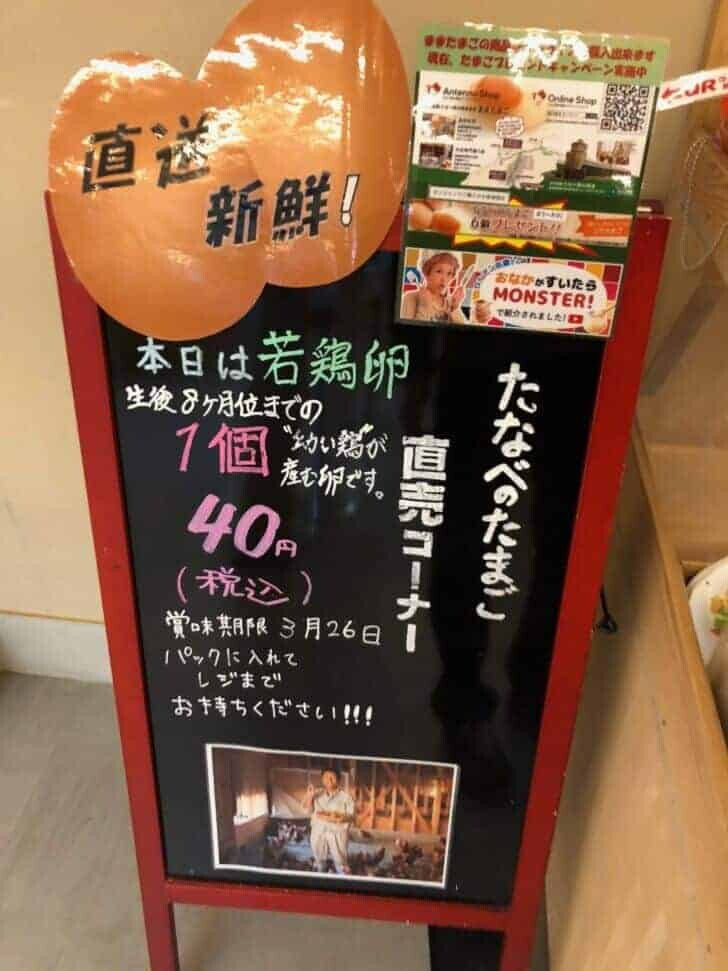 直送
新鮮!
現在、たまごプレゼントキャンペーン実施中
Antenna Shop
Online Shop
6個プレゼント!!
おなかがすいたら
MONSTER!
で紹介されました!
たなべのたまご
直売コーナー
本日は若鶏卵
生後8ヶ月位までの
"幼い鶏"が
産む卵です。
1個
40円
(税込)
賞味期限 3月26日
パックに入れて
レジまで
お持ちください!!!